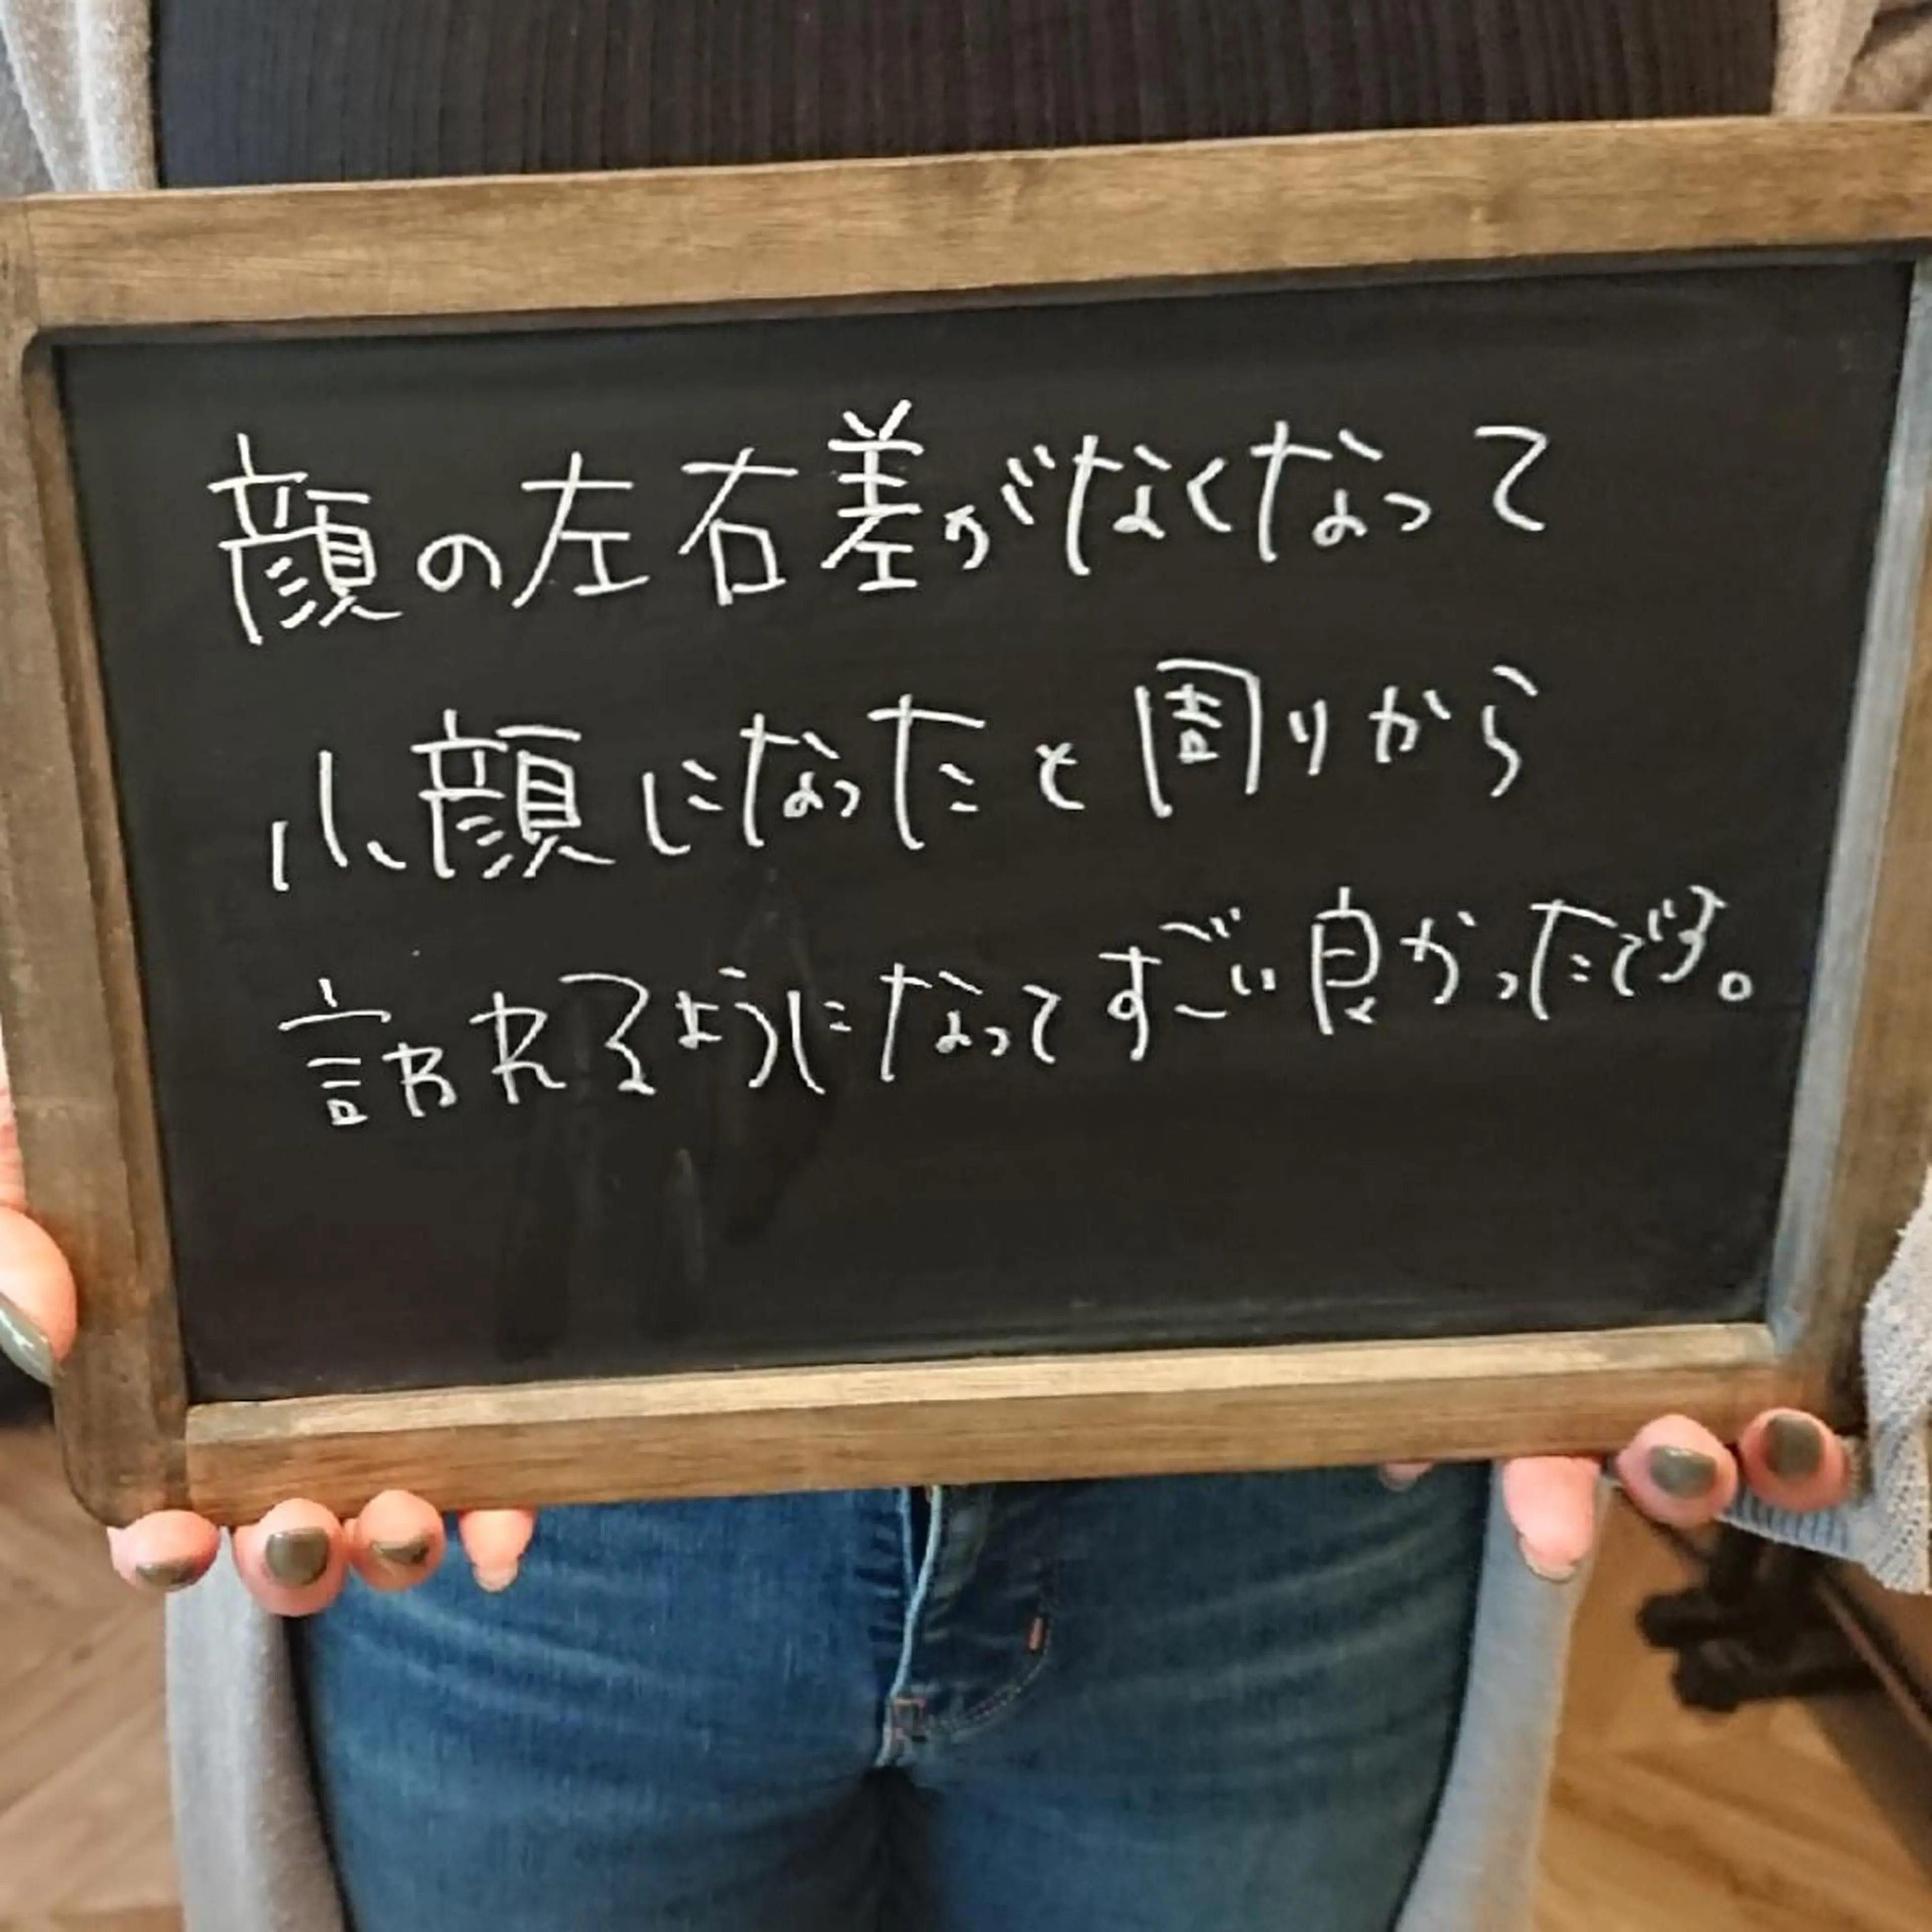 顔の左右差がなくなって
小顔になったと周りから
言われるようになってすごい良かったです。